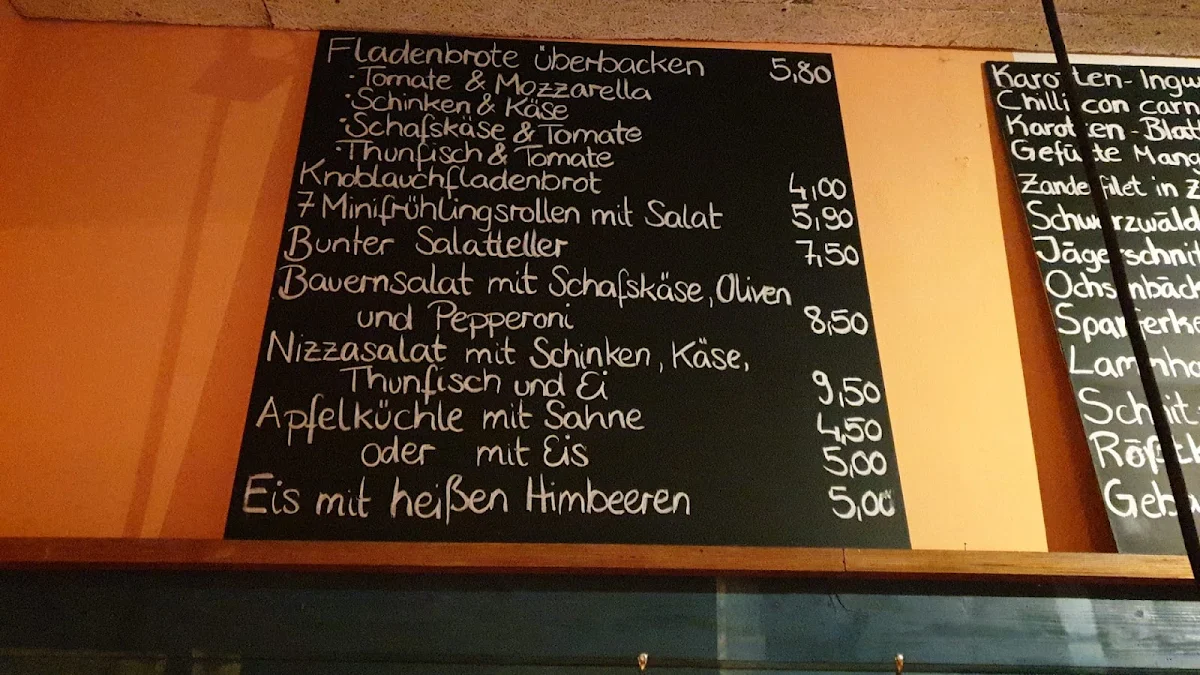 Fladenbrote überbacken 5,80
·Tomate & Mozzarella
·Schinken & Käse
·Schafskäse & Tomate
·Thunfisch & Tomate
Knoblauchfladenbrot 4,00
7 Minifrühlingsrollen mit Salat 5,90
Bunter Salatteller 7,50
Bauernsalat mit Schafskäse, Oliven
und Pepperoni 8,50
Nizzasalat mit Schinken, Käse,
Thunfisch und Ei 9,50
Apfelküchle mit Sahne 4,50
oder mit Eis 5,00
Eis mit heißen Himbeeren 5,00
Karotten-Ingw
Chilli con carn
Karotten-Blatt
Gefüllte Mang
Zanderfilet in Z
Schwarzwäld
Jägerschnit
Ochsenbäck
Spanferke
Lammha
Schnitz